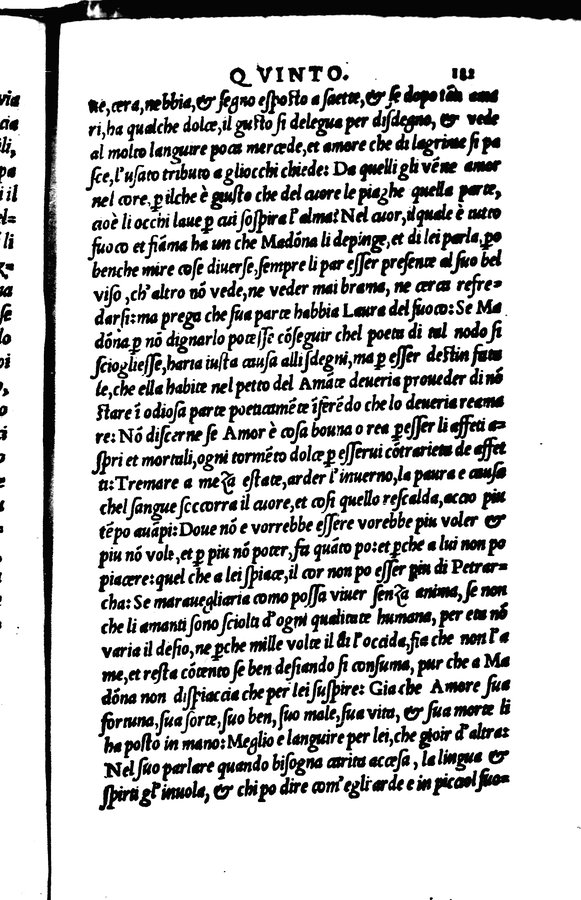 QVINTO. 182
ne, cera, nebbia, & segno esposto a saette, & se dopo tãti ama
ri, ha qualche dolce, il gusto si delegua per disdegno, & vede
al molto languire poca mercede, et amore che di lagrime si pa
sce, l'usato tributo a gliocchi chiede: Da quelli gli véne amor
nel core, ꝑ ilche è giusto che del cuore le piaghe quella parte,
cioè li occhi laue ꝑ cui sospira l'alma: Nel cuor, il quale è tutto
fuoco et fiáma ha un che Madóna li depinge, et di lei parla, po
benche mire cose diuerse, sempre li par esser presente al suo bel
viso, ch'altro nó vede, ne veder mai brama, ne ceras refre=
darsi: ma prega che sua parte habbia Laura del fuoco: Se Ma
dóna ꝑ nó dignarlo potesse cóseguir chel poeta di tal nodo si
sciogliesse, haria iusta causa alli sdegni, ma ꝑ esser destin fata
le, che ella habite nel petto del Amáte deueria proueder di nó
stare í odiosa parte poeticaméte íferédo che lo deueria reama
re: Nó discerne se Amor è cosa bouna o rea ꝑ esser li affeti a=
spri et mortali, ogni torméto dolce ꝑ esserui cótrarieta de affet
ti: Tremare a meza estate, arder l'inuerno, la paura e causa
chel sangue sccorra il cuore, et cosi quello rescalda, accio piu
tépo auápi: Doue nó e vorrebbe essere vorebbe piu voler &
piu nó vole, et ꝑ piu nó poter, fa quáto po: et ꝑche a lui non po
piacere: quel che a lei spiace, il cor non po esser piu di Petrar=
cha: Se marauegliaria como possa viuer senza anima, se non
che li amanti sono sciolti d'ogni qualitate humana, per eta nó
varia il desio, ne ꝑche mille volte il di l'occida, fia che non l'a
me, et resta cótento se ben desiando si consuma, pur che a Ma
dóna non dispiaccia che per lei suspire: Gia che Amore sua
fortuna, sua sorte, suo ben, suo male, sua vita, & sua morte li
ha posto in mano: Meglio e languire per lei, che gioir d'altra:
Nel suo parlare quando bisogna carita accesa, la lingua &
spirti gl'inuola, & chi po dire com'egli arde e in picciol fuo=